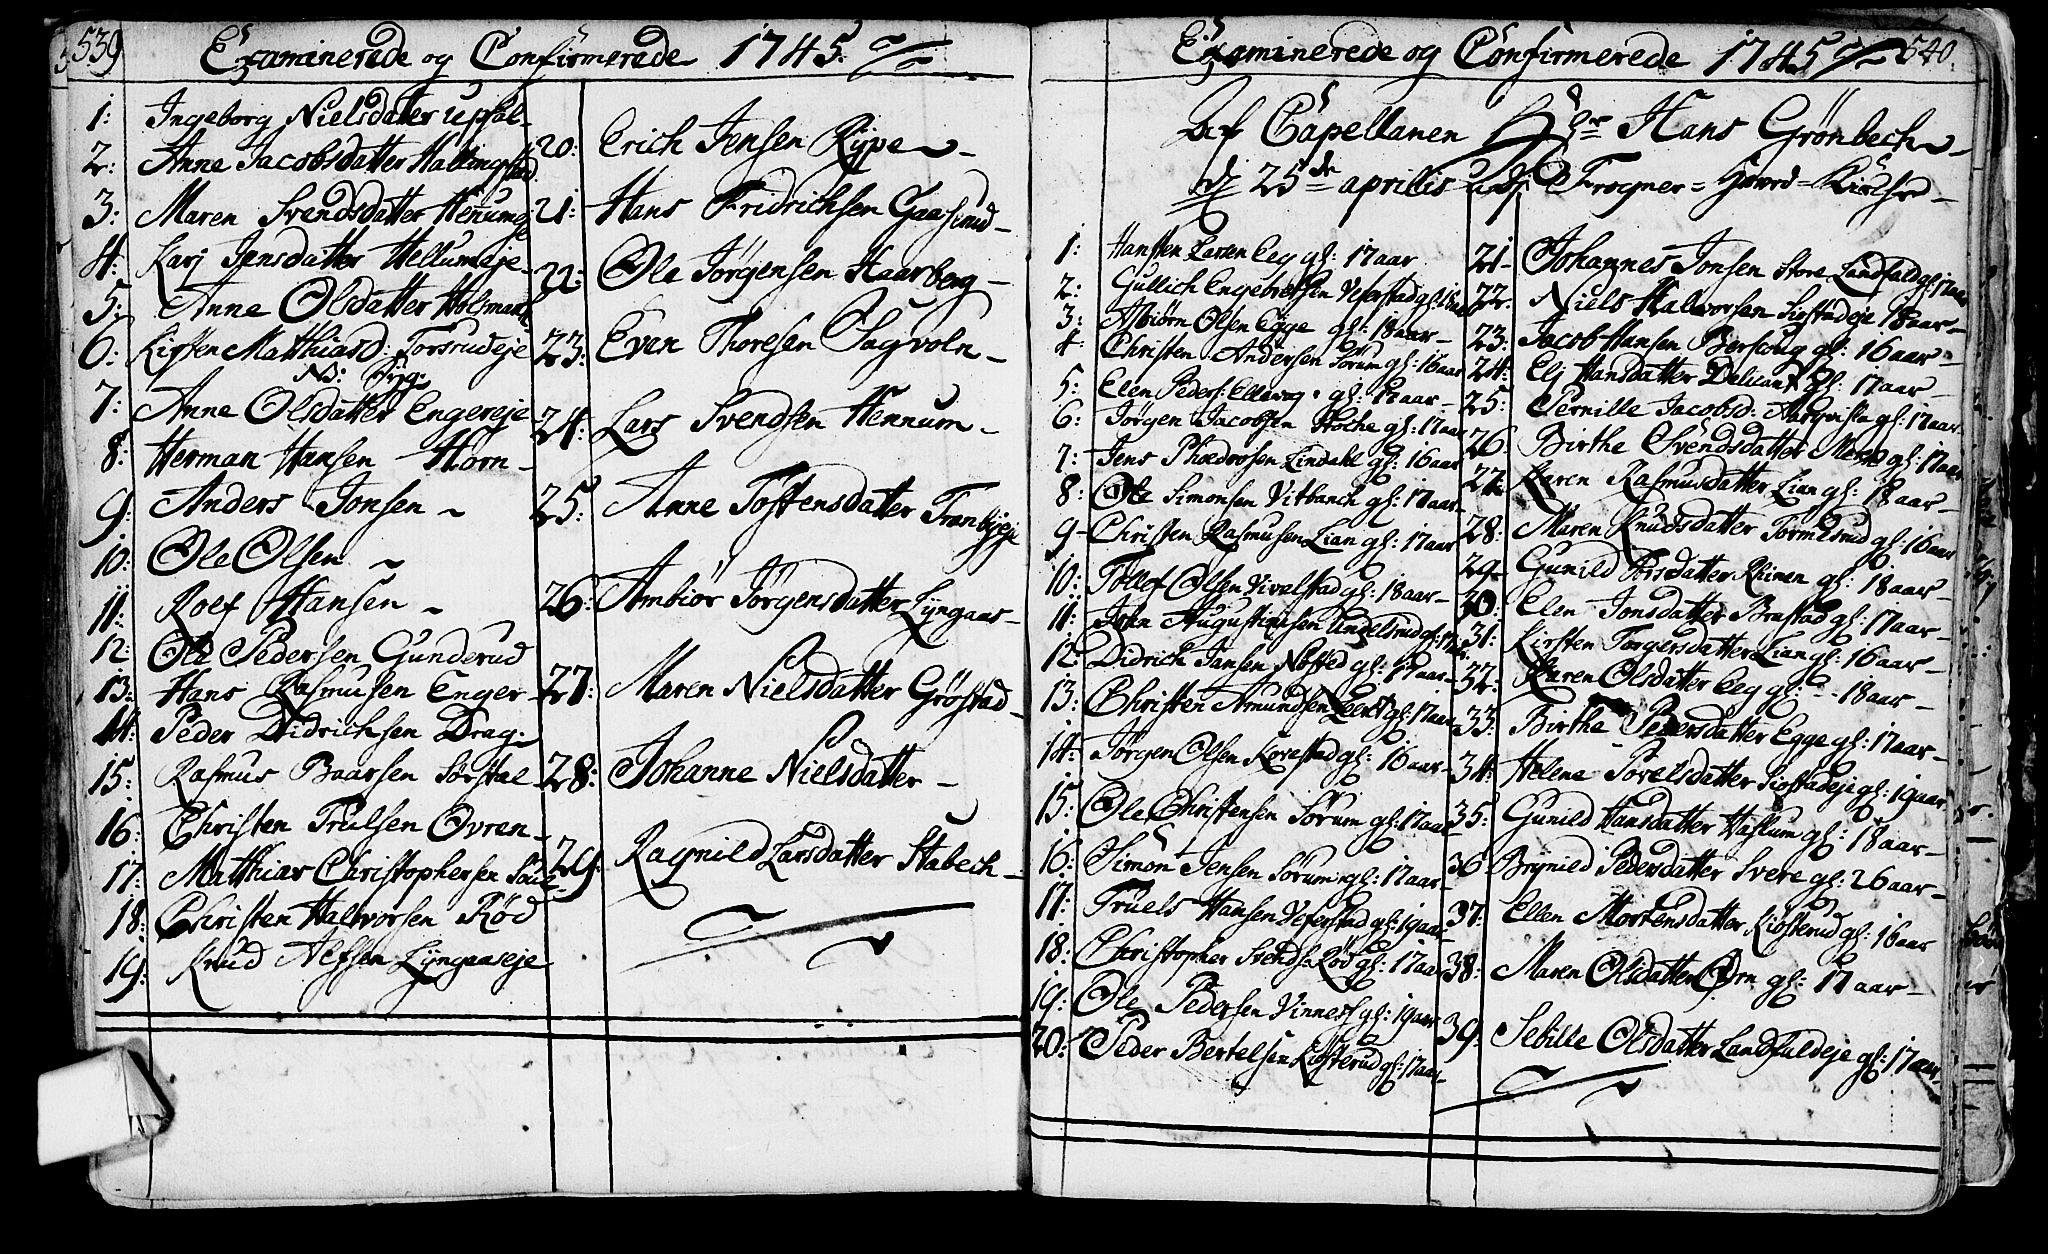 539
Examinerede og Confirmerede 1745.
1: Ingeborg Nielsdatter upsal-
2: Anne Jacobsdatter Hallingstad
3: Maren Svendsdatter Henumeje
4: Karj Jensdatter Hellumeje-
5: Anne Olsdatter Holsmark
6: Kirsten Matthiasd: Torsrudeje
NB: Syg.
7: Anne Olsdatter Engereje
8: Herman Hansen Horn-
9: Anders Jonsen ~
10: Ole Olsen ~
11: Roef Hansen ~
12: Ole Pedersen Gunderud
13: Hans Rasmussen Enger-
14: Peder Didrichsen Drag.
15: Rasmus Baarsen Sørstal
16: Christen Trulsen Ovren-
17: Matthias Christophersen
18: Christen Halvorsen Rød
19: Knud Alfsen Lyngaaseje
20: Erich Jensen Rype-
21: Hans Fridrichsen Gaasrud-
22: Ole Jørgensen Haarberg-
23: Even Thoresen Sagvoln-
24: Lars Svendsen Hennum-
25: Anne Tostensdatter Tranbyeje
26: Ambiør Jørgensdatter Lyngaas-
27: Maren Nielsdatter Grøstad-
28: Johanne Nielsdatter-
29: Ragnild Larsdatter Stabech-
540.
Examinerede og Confirmerede 1745
Af Capellanen Hr Hans Grønbech
d 25de aprilis udj Frogner = Hoved = Kirche-
1: Hansten Larsen Eeg gl: 17 aar
2: Gullich Engebretsen Veserstad gl:
3: Asbiørn Olsen Egge gl: 18 aar-
4 Christen Andersen Sørum gl: 16 aar
5: Elen Peders: Ellevog gl: 17 aar-
6: Jørgen Jacobsen Holte gl: 17 aar
7: Jens Phoedrosen Lindahl gl: 16 aar
8: Ole Simonsen Vitbanch gl: 17 aar-
9- Christen Rasmusen Lian gl: 17 aar
10: Tollef Olsen Vivelstad gl: 18 aar-
11: John Augustinusen Undelsrud gl: 17
12: Didrich Jansen Nøsted gl: 17 aar-
13: Christen Amundsen Leerst gl: 17 aar
14: Jørgen Olsen Kovestad gl: 16 aar-
15: Ole Christensen Sørum gl: 17 aar
16: Simon Jensen Sørum gl: 17 aar-
17: Truels Hansen Veserstad gl: 19 aar-
18: Christopher Svends: Rød gl: 17 aar
19: Ole Pedersen Vinness gl: 19 aar
20: Peder Bertelsen Kiosterud gl: 17 aar-
21- Johannes Jonsen Store Landfald gl: 17 aar
22: Niels Halvorsen Siostadeje 18 aar-
23: Jacob Hansen Berskoug gl: 16 aar-
24: Elj Hansdatter Delicant gl: 17 aar-
25: Pernille Jacobsd: gl: 17 aar
26: Birthe Svendsdatter Moen gl: 17 aar
27: Karen Rasmusdatter Lian gl: 18 aar-
28: Maren Knudsdatter Tormesrud gl: 16 aar
29- Gunild Torsdatter Rhinen gl: 18 aar-
30: Elen Jonsdatter Brastad gl: 17 aar-
31: Kirsten Torgersdatter Lian gl: 16 aar-
32: Karen Olsdatter Eeg gl: - 18 aar-
33: Birthe Pedersdatter Egge gl: 17 aar-
34: Helene Povelsdatter Siostadeje gl: 19 aar
35: Gunild Hansdatter Haslum gl: 18 aar-
36 Brynild Pedersdatter Svere gl: 26 aar-
37: Ellen Mortensdatter Kiosterud gl: 16 aar
38: Maren Olsdatter Ørn gl: 17 aar-
39: Sebille Olsdatter Landfaldeje gl: 17 aar-